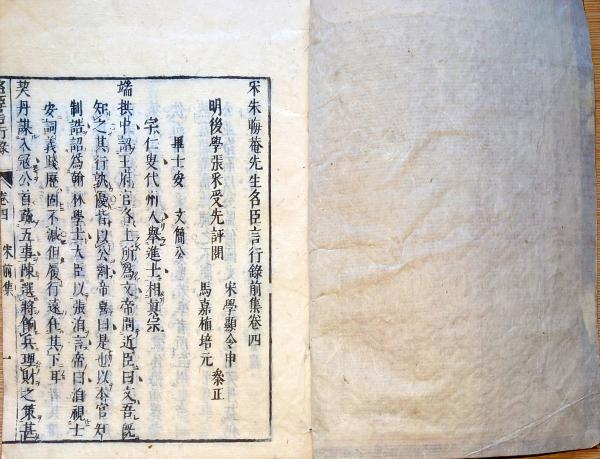 宋朱晦菴先生名臣言行錄前集卷四
明後學張采受先評閱 宋學顯令申
馬嘉植培元 參正
畢士安 文簡公
字仁叟代州人舉進士相真宗
端拱中詔王府官各上所為文帝問近臣曰文吾既
知之其行孰優皆以公對帝喜曰是也以本官知
制誥詔為翰林學士大臣以張洎言帝曰洎視士
安詞義踐歷固不減但履行遠在其下耳
契丹謀入寇公首疏五事陳選將飭兵理財之策甚
名臣言行錄 卷四 宋前集 一